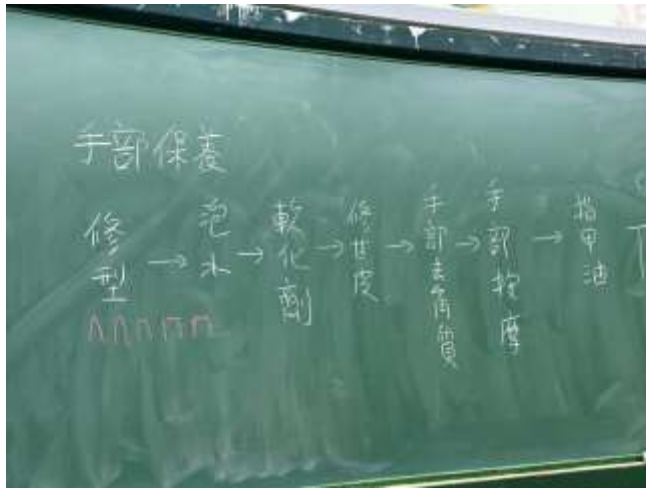 手部保養
修型→泡水→軟化劑→修甘皮→手部去角質→手部按摩→指甲油